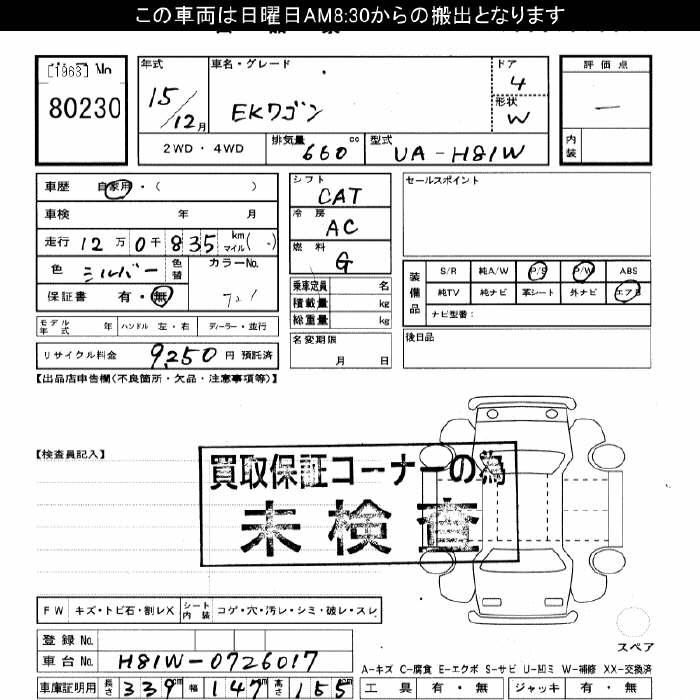 この車両は日曜日AM8:30からの搬出となります
[1963] No
80230
年式 車名・グレード ドア 評価点
15/12月 EKワゴン 4
形状 W
2WD・4WD 排気量 660 cc 型式 UA-H81W
内装
車歴 自家用・( )
車検 年 月
走行 12万0千835 km マイル( )
色 シルバー 色替 カラーNo.
保証書 有・無
モデル年式 年 ハンドル 左・右 ディーラー・並行
リサイクル料金 9,250 円 預託済
シフト CAT
冷房 AC
燃料 G
乗車定員 名
積載量 kg
総重量 kg
名変期限
月 日
セールスポイント
装備品 S/R 純A/W P/S P/W ABS
純TV 純ナビ 革シート 外ナビ エアB
ナビ型番:
後日品
【出品店申告欄(不良箇所・欠品・注意事項等)】
【検査員記入】
買取保証コーナーの為
未検査
FW キズ・トビ石・割レX シート内装 コゲ・穴・汚レ・シミ・破レ・スレ
登録No.
車台No. H81W-0726017
車庫証明用 長さ 339cm 幅 147cm 高さ 155cm
スペア
A-キズ C-腐食 E-エクボ S-サビ U-凹ミ W-補修 XX-交換済
工具 有・無 ジャッキ 有・無